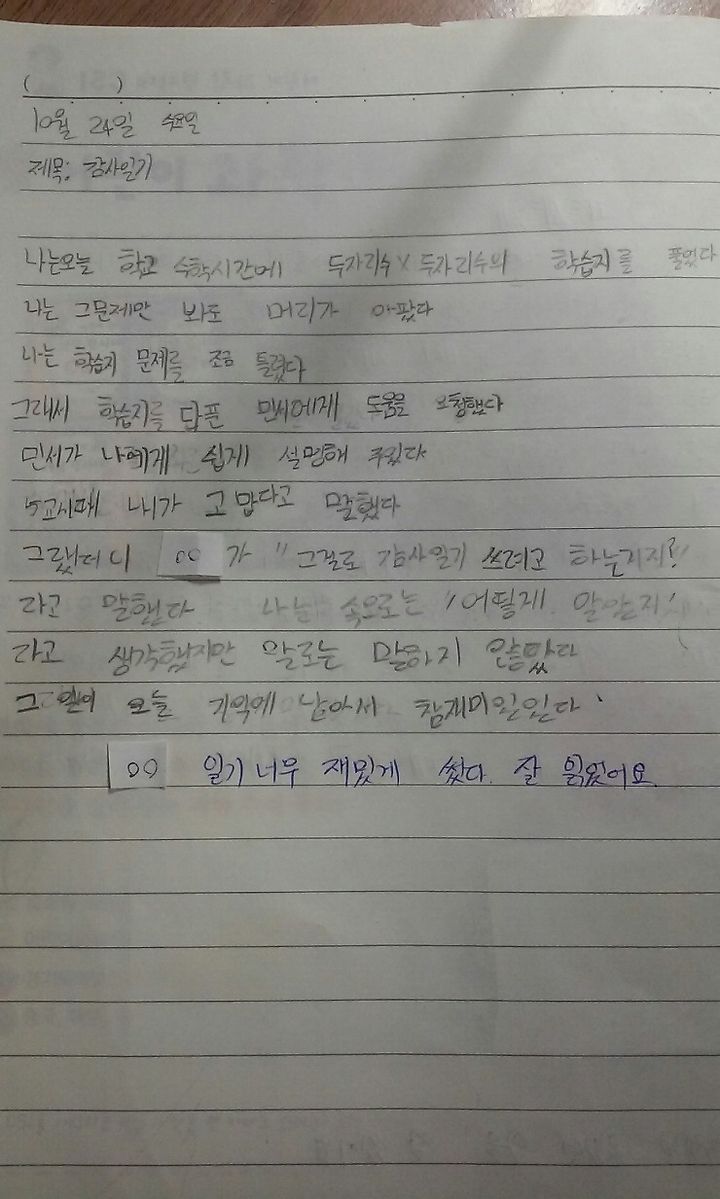 ( )
10월 24일 수요일
제목: 감사일기
나는오늘 학교 수학시간에 두자리수X두자리수의 학습지를 풀었다
나는 그문제만 봐도 머리가 아팠다
나는 학습지 문제를 조금 틀렸다
그래서 학습지를 다푼 민서에게 도움을 요청했다
민서가 나에게 쉽게 설명해 주었다
5교시때 내가 고맙다고 말했다
그랬더니 OO가 "그걸로 감사일기 쓰려고 하는거지?"
라고 말했다 나는 속으로는 '어떻게 알았지'
라고 생각했지만 말로는 말하지 않았다
그 일이 오늘 기억에 남아서 참재미있었다
OO 일기 너무 재밌게 썼다. 잘 읽었어요.